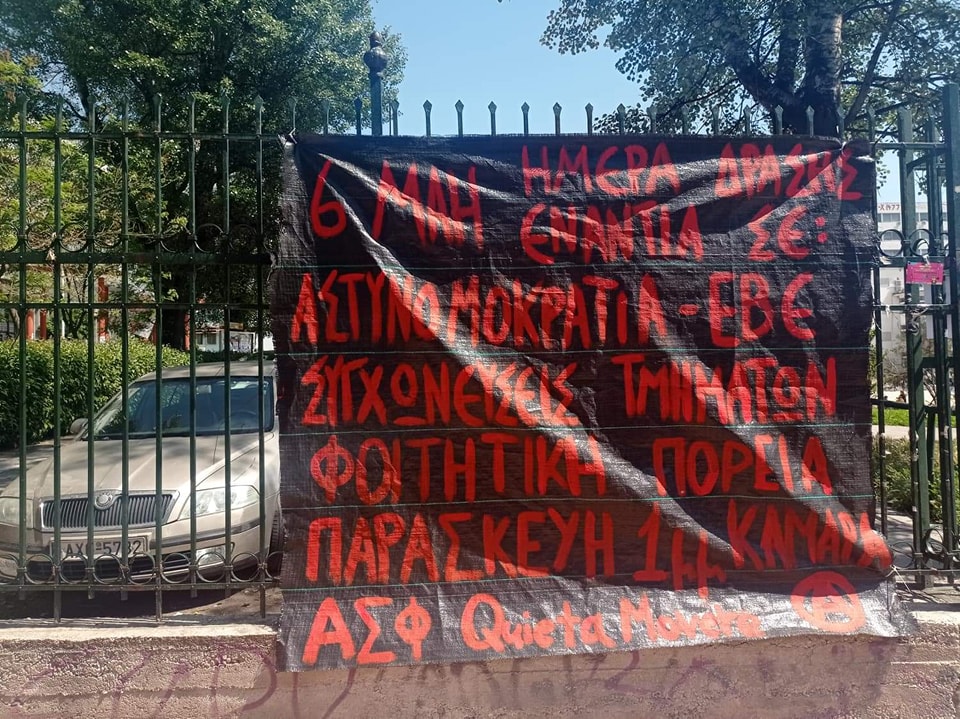 6 ΜΑΗ ΗΜΕΡΑ ΔΡΑΣΗΣ
ΕΝΑΝΤΙΑ ΣΕ:
ΑΣΤΥΝΟΜΟΚΡΑΤΙΑ - ΕΒΕ
ΣΥΓΧΩΝΕΥΣΕΙΣ ΤΜΗΜΑΤΩΝ
ΦΟΙΤΗΤΙΚΗ ΠΟΡΕΙΑ
ΠΑΡΑΣΚΕΥΗ 1μμ ΚΑΜΑΡΑ
ΑΣΦ Quieta Movere